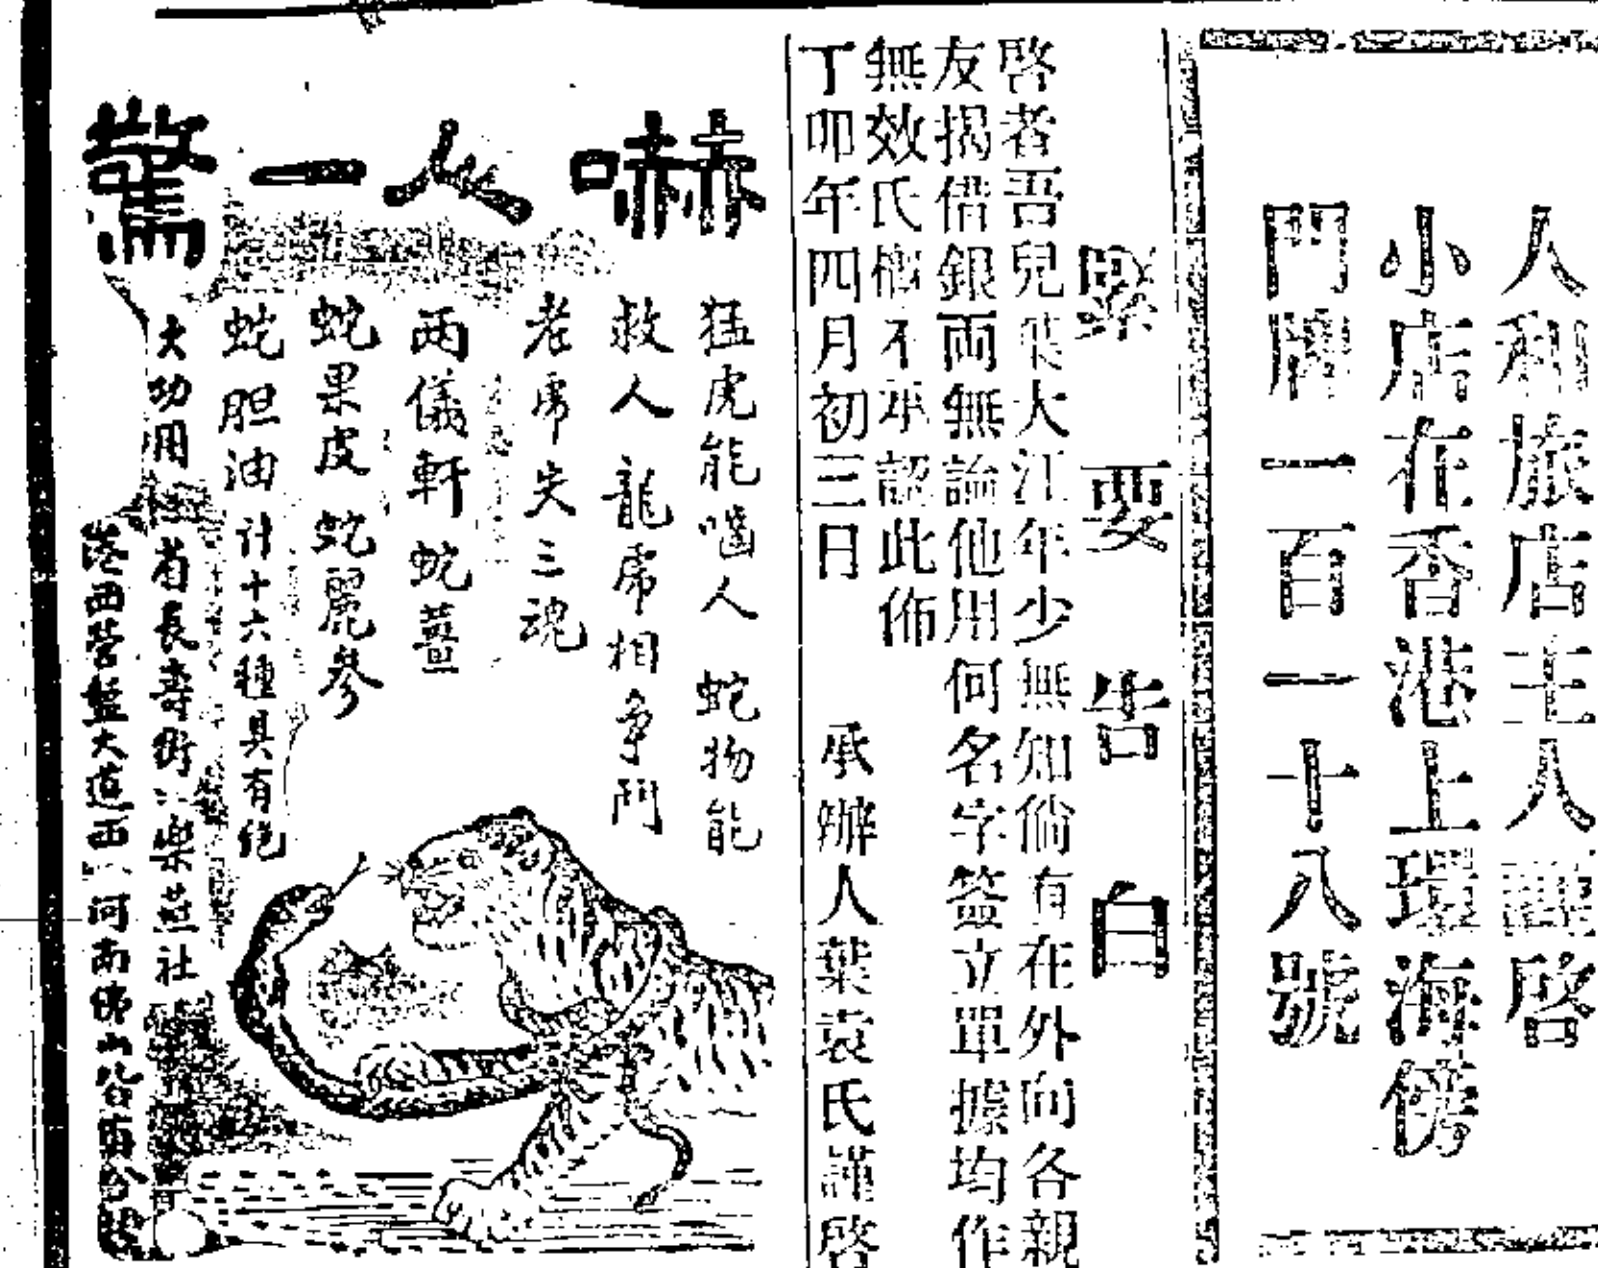 人和旅店主人謹啓
小店在香港上環海傍
門牌一百一十八號
緊要告白
啓者吾兒葉大江年少無知倘有在外向各親
友揭借銀両無論他用何名字簽立單據均作
無效氏概不承認此佈
丁卯年四月初三日 承辦人葉袁氏謹啓
嚇人一驚
猛虎能噬人 蛇物能
救人 龍虎相爭鬥
老虎失三魂
両儀軒 蛇薑
蛇果皮 蛇麗參
蛇胆油 计十六種具有絕
大功用 省長壽街
河南佛山